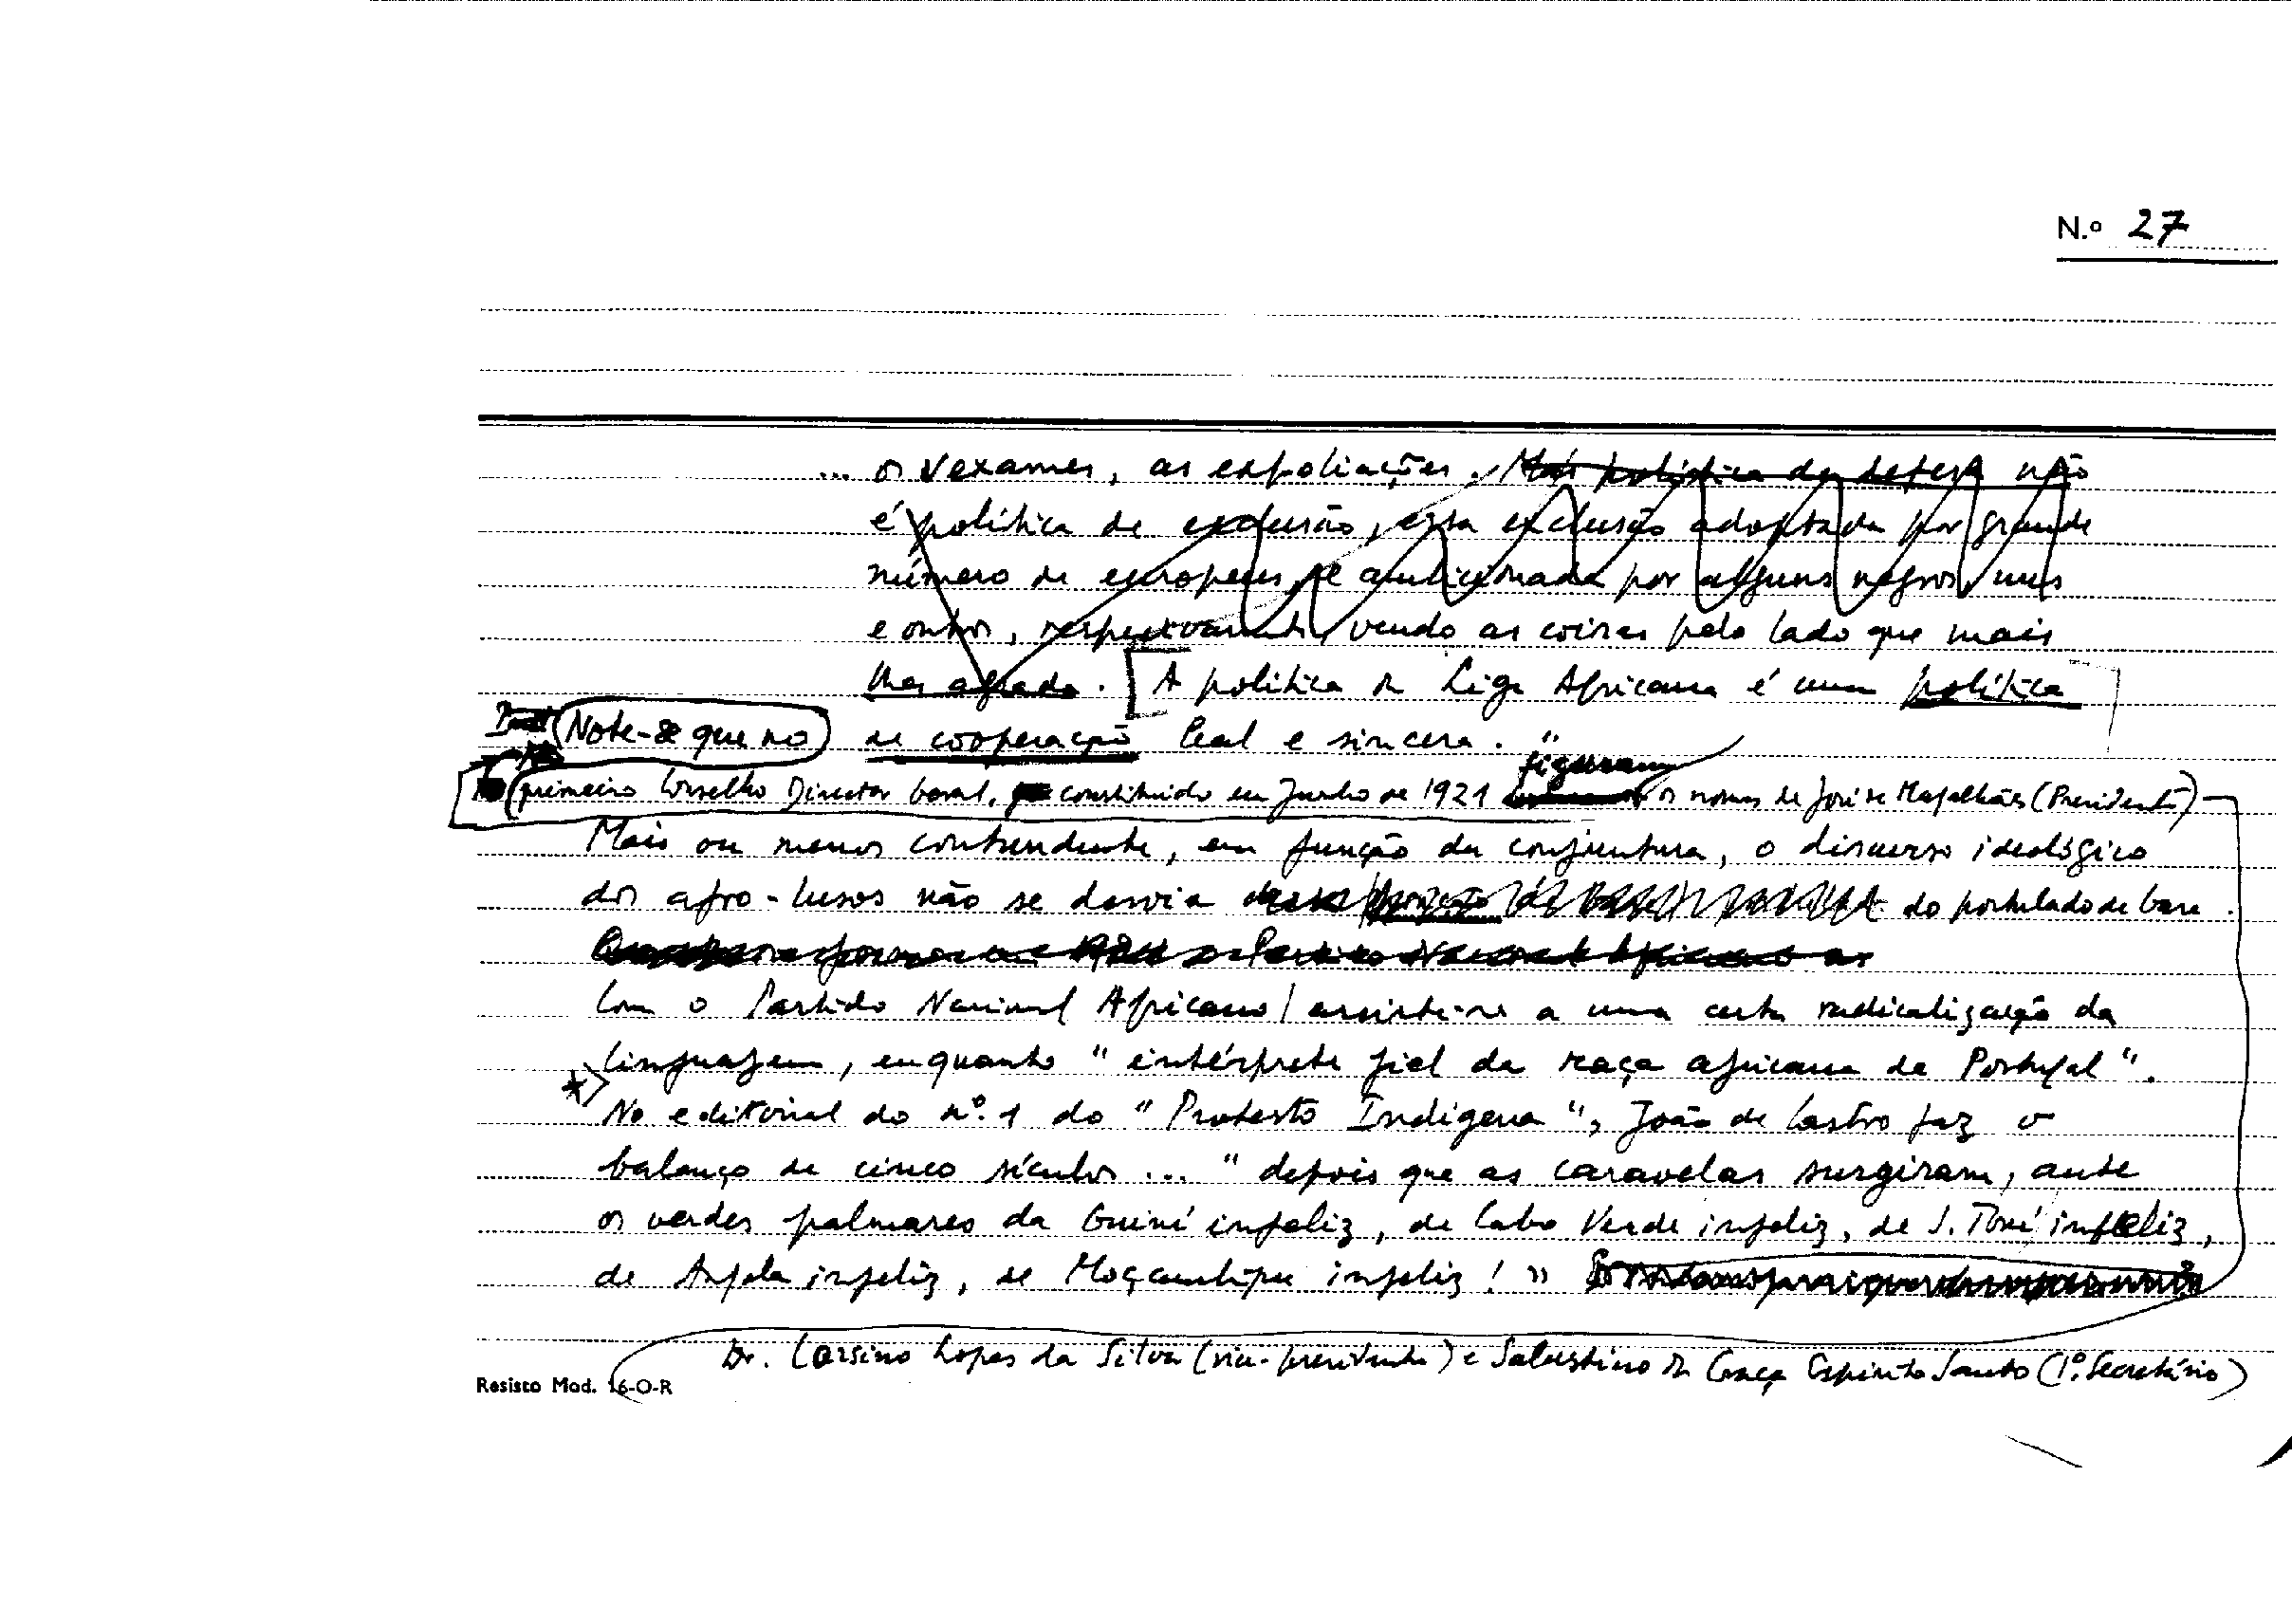 N.º 27
... os vexames, as expoliações. Mas política de defesa não
é política de exclusão, esta exclusão adoptada por grande
número de europeus, e ambicionada por alguns negros, uns
e outros, respectivamente, vendo as coisas pelo lado que mais
lhes agrada. [A política da Liga Africana é uma política
de cooperação leal e sincera."
(Note-se que no)
figuram
(primeiro Conselho Director Geral, constituído em Junho de 1921 os nomes de José de Magalhães (Presidente)
Mais ou menos contundente, em função da conjuntura, o discurso ideológico
dos afro-lusos não se desvia do postulado de base.
Com o Partido Nacional Africano / assiste-se a uma certa radicalização da
linguagem, enquanto "intérprete fiel da raça africana de Portugal".
* > No editorial do nº. 1 do "Protesto Indígena", João de Castro faz o
balanço de cinco séculos ... "depois que as caravelas surgiram, ante
os verdes palmares da Guiné infeliz, de Cabo Verde infeliz, de S. Tomé infeliz,
de Angola infeliz, de Moçambique infeliz! »
Dr. Carsino Lopes da Silva (vice-presidente) e Salustino da Graça Espírito Santo (1º. Secretário)
Resisto Mod. 16-O-R